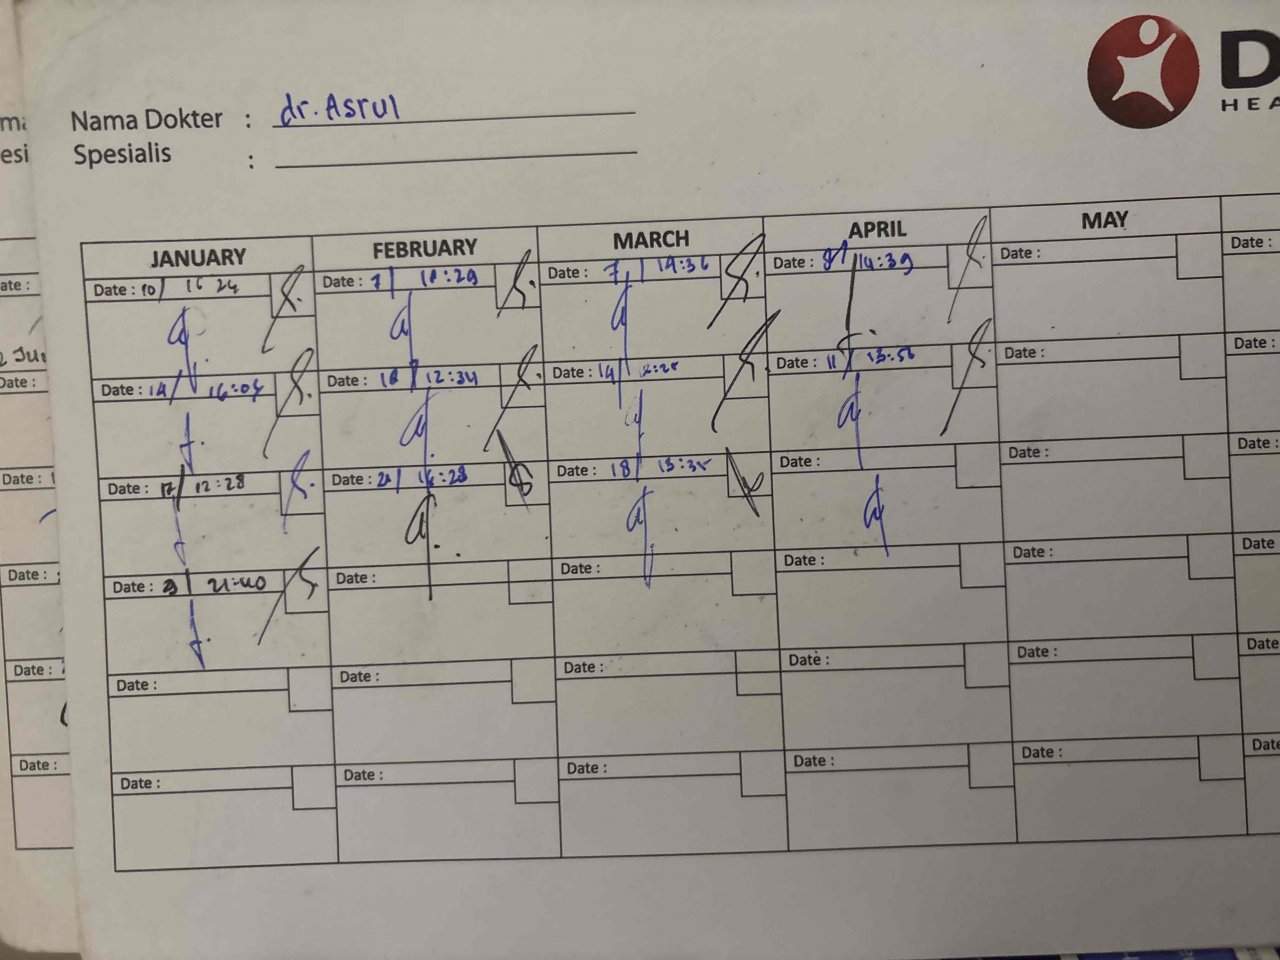 Nama Dokter : dr. Asrul
Spesialis :
D
HEA
JANUARY FEBRUARY MARCH APRIL MAY
Date : 10/ 16 24 Date : 7/ 18:29 Date : 7/ 19:36 Date : 14:39 Date : Date :
Date : 14/ 16:04 Date : 18/ 12:34 Date : 14/ Date : 11/ 13:56 Date : Date :
Date : 17/ 12:28 Date : 21/ 16:28 Date : 18/ 15:35 Date : Date : Date :
Date : 21:40 Date : Date : Date : Date : Date
Date : Date : Date : Date : Date : Date
Date : Date : Date : Date : Date : Date